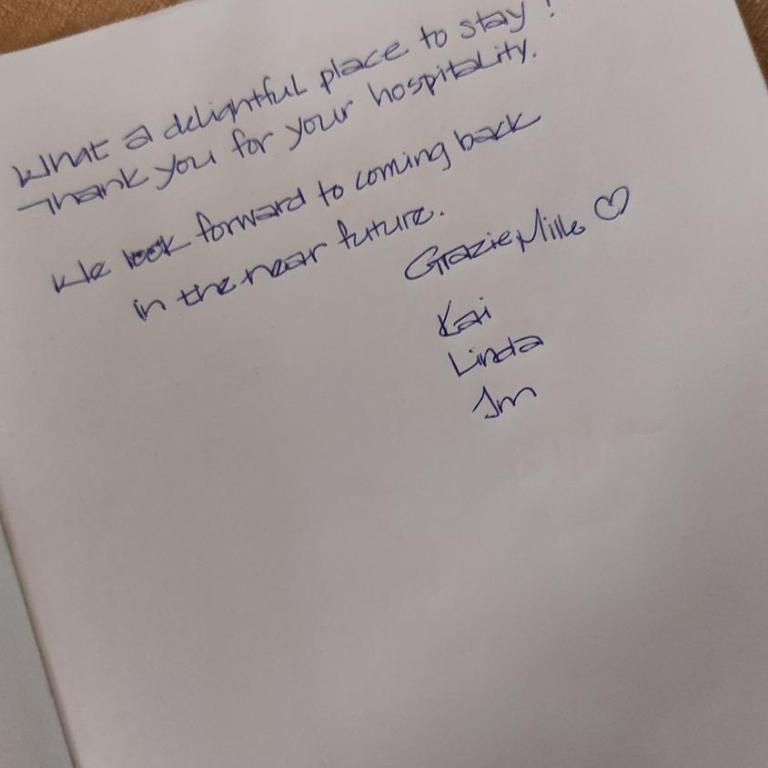 What a delightful place to stay!
Thank you for your hospitality.
We look forward to coming back
in the near future.
Grazie Mille ♡
Kai
Linda
Jm